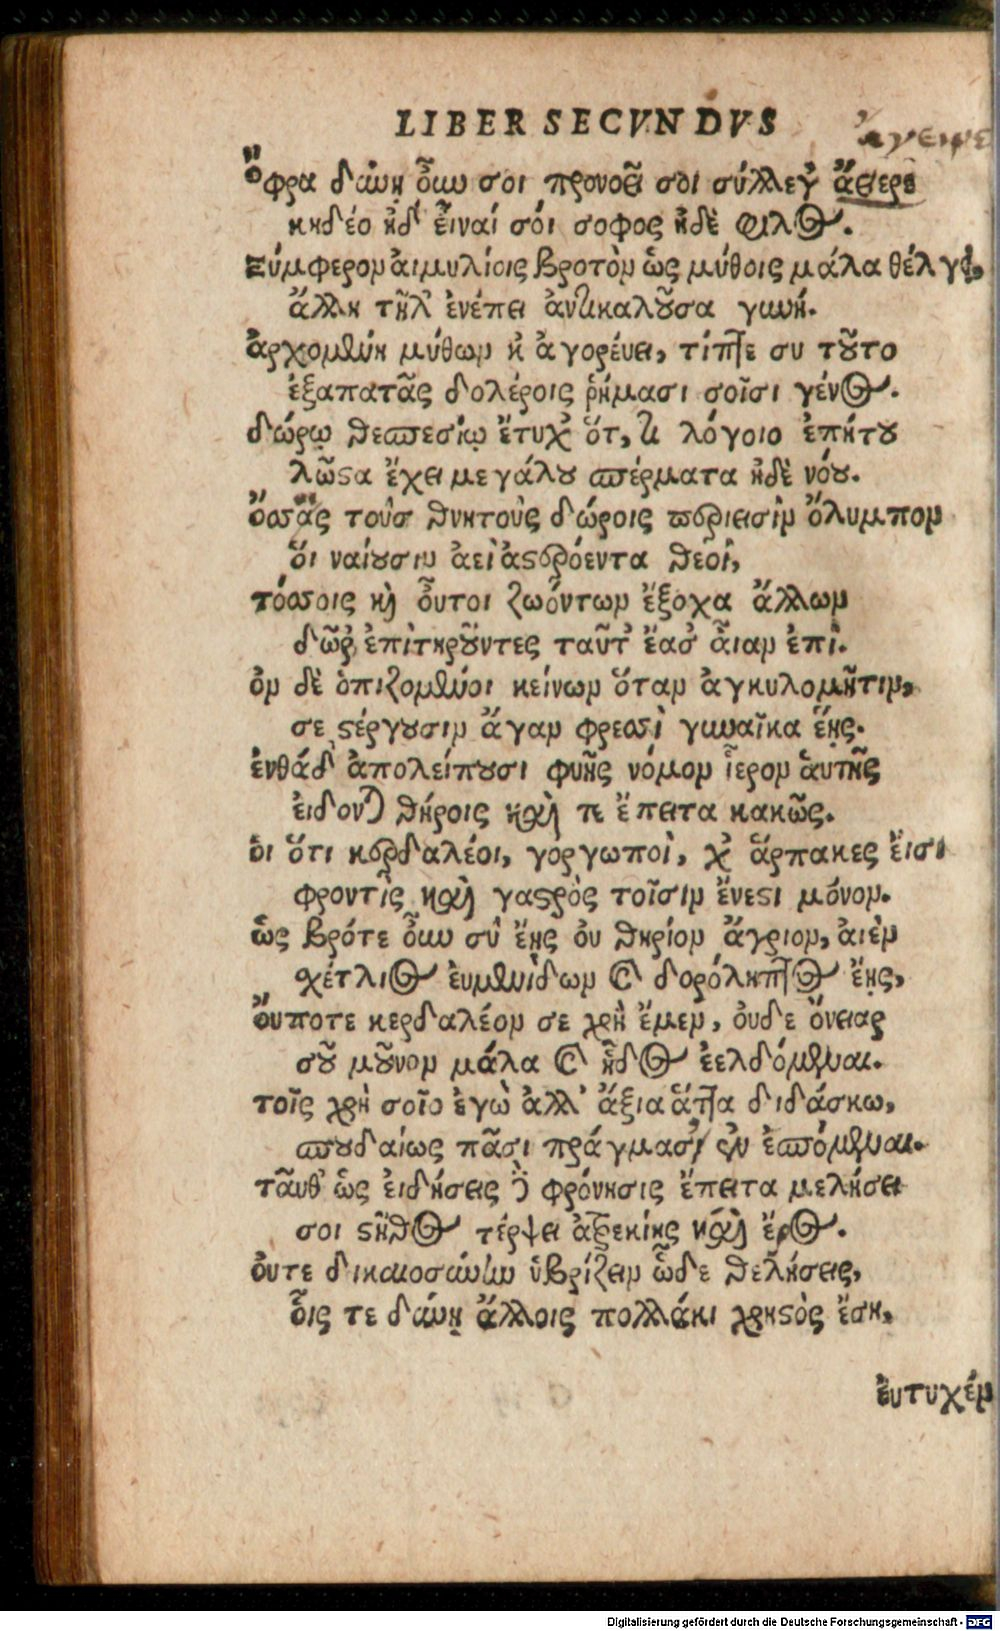 LIBER SECVNDVS
Ὄφρα δαύῃ οὖω σοι προνοεῖ σοι σύλλεγ' ἄθερε
κηδέο ἠδ' εἶναί σόι σοφος ἠδὲ φιλος.
Ξύμφερομ ἁιμυλίοις βροτὸμ ὡς μύθοις μάλα θέλγει,
ἄλλη τῆλ' ἐνέπει ἀντικαλοῦσα γωή.
ἀρχομένη μύθωμ κ ἀγορέυει, τίπτε συ τοῦτο
ἐξαπατᾶς δολέροις ῥήμασι σοῖσι γένος.
δώρῳ θεσπεσίῳ ἔτυχ' ὅτ, τι λόγοιο ἐπήτου
λῶστα ἔχει μεγάλου σπέρματα ἠδὲ νόου.
τοὺσ θνητοὺς δώροις περιεισὶμ ὄλυμπομ
ὅι ναίουσιμ ἀεὶ ἀστερόεντα θεοὶ,
τόσσοις καὶ οὗτοι ζωόντωμ ἔξοχα ἄλλωμ
δῶρ' ἐπιτηροῦντες ταῦτ' ἔασ' ἆιαμ ἐπὶ.
ὁμ δὲ ὀπιζομένοι κείνωμ ὅταμ ἀγκυλομῆτιμ,
σε στέργουσιμ ἄγαμ φρεσσὶ γωαῖκα ἕῃς.
ἐνθάδ' ἀπολείπουσι φυῆς νόμομ ἱερομ ἁυτῆς
ἐιδονται θήροις καὶ τι ἔπειτα κακῶς.
ὁι ὅτι κερδαλέοι, γοργωποὶ, χ' ἅρπακες ἔισι
φροντὶς καὶ γαστρὸς τοῖσιμ ἔνεστι μόνομ.
ὡς βρότε οὖω σύ ἔῃς ὀυ θηρίομ ἄγριομ, ἀιὲμ
σχέτλιος ἐυμενίδωμ καὶ δορόληπτος ἔῃς,
ὄυποτε κερδαλέομ σε χρὴ ἔμεμ, ὀυδε ὄνειαρ
σοῦ μοῦνομ μάλα καὶ ἦδος ἐελδόμεναι.
τοῖς χρὴ σοῖο ἐγὼ ἀλλ' ἄξια ἅττα διδάσκω,
σπουδαίως πᾶσι πράγμασι σὺν ἑσπόμεναι.
τᾶυθ' ὡς ἐιδήσεις φρόνησις ἔπειτα μελήσει
σοι στῆθος τέρψει ἀξεκίης καὶ ἔρος.
ὀυτε δικαιοσάωω ὑβρίζειμ ὧδε θελήσεις,
οἷς τε δαύῃ ἄλλοις πολλάκι χρηστὸς ἔσῃ,
ἐυτυχέμ
Digitalisierung gefördert durch die Deutsche Forschungsgemeinschaft - DFG